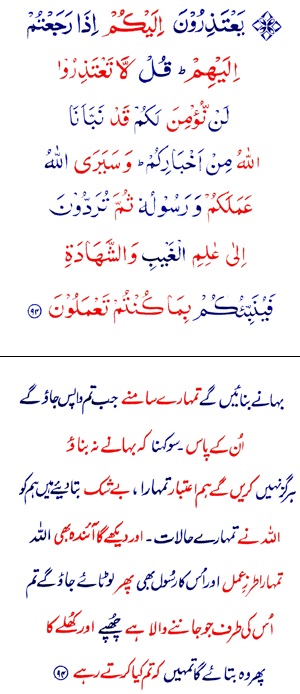 يَعۡتَذِرُوۡنَ اِلَيۡكُمۡ اِذَا رَجَعۡتُمۡ
اِلَيۡهِمۡ‌ ؕ قُلْ لَّا تَعۡتَذِرُوۡا
لَنۡ نُّؤۡمِنَ لَـكُمۡ قَدۡ نَـبَّاَنَا
اللّٰهُ مِنۡ اَخۡبَارِكُمۡ‌ ؕ وَ سَيَرَى اللّٰهُ
عَمَلَـكُمۡ وَ رَسُوۡلُهٗ ثُمَّ تُرَدُّوۡنَ
اِلٰى عٰلِمِ الۡغَيۡبِ وَالشَّهَادَةِ
فَيُنَبِّئُكُمۡ بِمَا كُنۡتُمۡ تَعۡمَلُوۡنَ ﴿۹۴﴾
بہانے بنائیں گے تمہارے سامنے جب تم واپس جاؤ گے
اُن کے پاس ۔ سو کہنا کہ بہانے نہ بناؤ
ہرگز نہیں کریں گے ہم اعتبار تمہارا ، بے شک بتا دیئے ہیں ہم کو
اللہ نے تمہارے حالات ۔ اور دیکھے گا آئندہ بھی اللہ
تمہارا طرزِ عمل اور اُس کا رسُول بھی پھر لوٹائے جاؤ گے تم
اُس کی طرف جو جاننے والا ہے چُھپے اور کُھلے کا
پھر وہ بتائے گا تمہیں کہ تم کیا کرتے رہے ﴿۹۴﴾